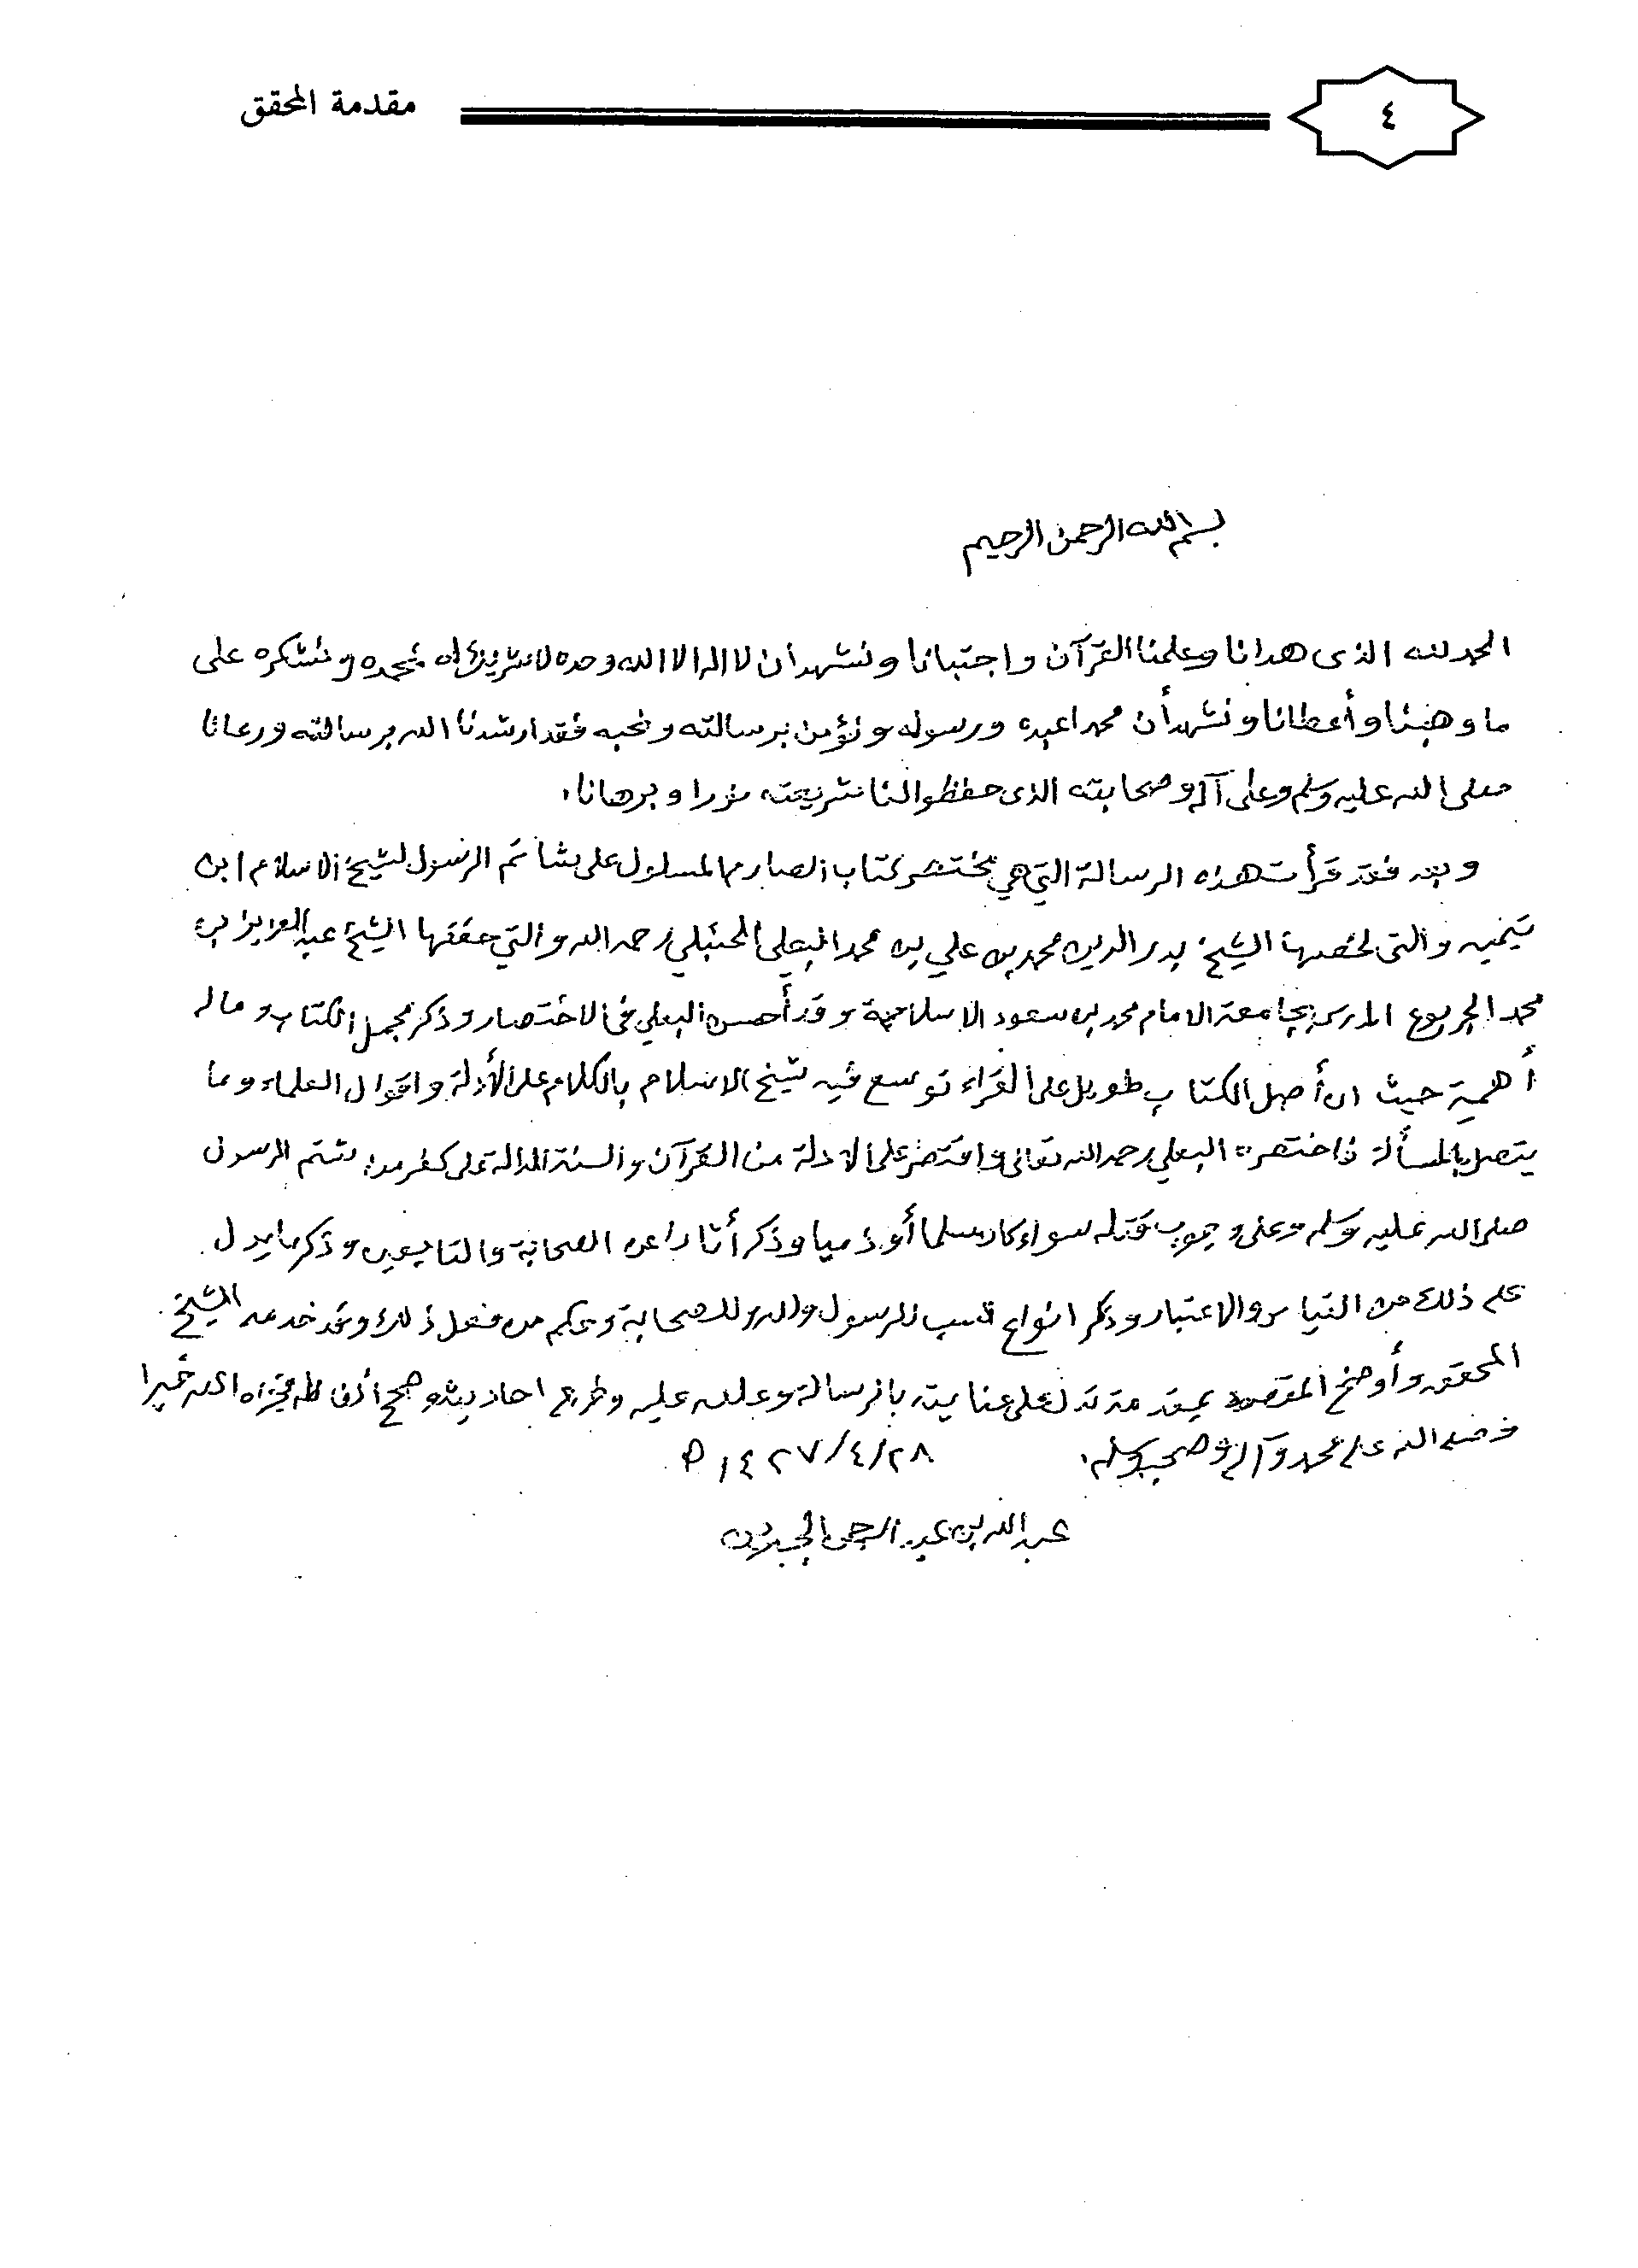 ٤
مقدمة المحقق
بسم الله الرحمن الرحيم
الحمد لله الذى هدانا وعلمنا القرآن واجتبانا ونشهد أن لا اله الا الله وحده لا شريك له نحمده ونشكره على
ما وهبنا وأعطانا ونشهد أن محمدا عبده ورسوله ونؤمن برسالته ونحبه فقد ارشدنا الله برسالته ورعانا
صلى الله عليه وسلم وعلى آله وصحابته الذى حفظوا لنا شريعته نورا وبرهانا،
وبعد فقد قرأت هذه الرسالة التي هي مختصر كتاب الصارم المسلول على شاتم الرسول لشيخ الاسلام ابن
تيميه والتى لخصها الشيخ بدر الدين محمد بن علي بن محمد البعلي الحنبلي رحمه الله والتي حققها الشيخ عبد العزيز بن
محمد الجربوع المدرس بجامعة الامام محمد بن سعود الاسلامية وقد أحسن البعلي فى الاختصار وذكر مجمل الكتاب وما له
أهمية حيث ان أصل الكتاب طويل على القراء توسع فيه شيخ الاسلام بالكلام على الأدلة واقوال العلماء وما
يتصل بالمسألة فاختصره البعلي رحمه الله تعالى واقتصر على الادلة من القرآن والسنة الدالة على كفر من شتم الرسول
صلى الله عليه وسلم وعلى وجوب قتله سواء كان مسلما أو ذميا وذكر أثارا عن الصحابة والتابعين وذكر ما يدل
على ذلك من القياس والاعتبار وذكر انواع السب للرسول والله وللصحابة وحكم من فعل ذلك وقد خدمه الشيخ
المحقق وأوضح المقصود بمقدمة تدل على عنايته بالرسالة وعلق عليه وخرج احاديثه وصحح ألفاظه فجزاه الله خيرا
وصلى الله على محمد وآله وصحبه وسلم،
١٤٢٧/٤/٢٨ ه
عبد الله بن عبد الرحمن الجبرين